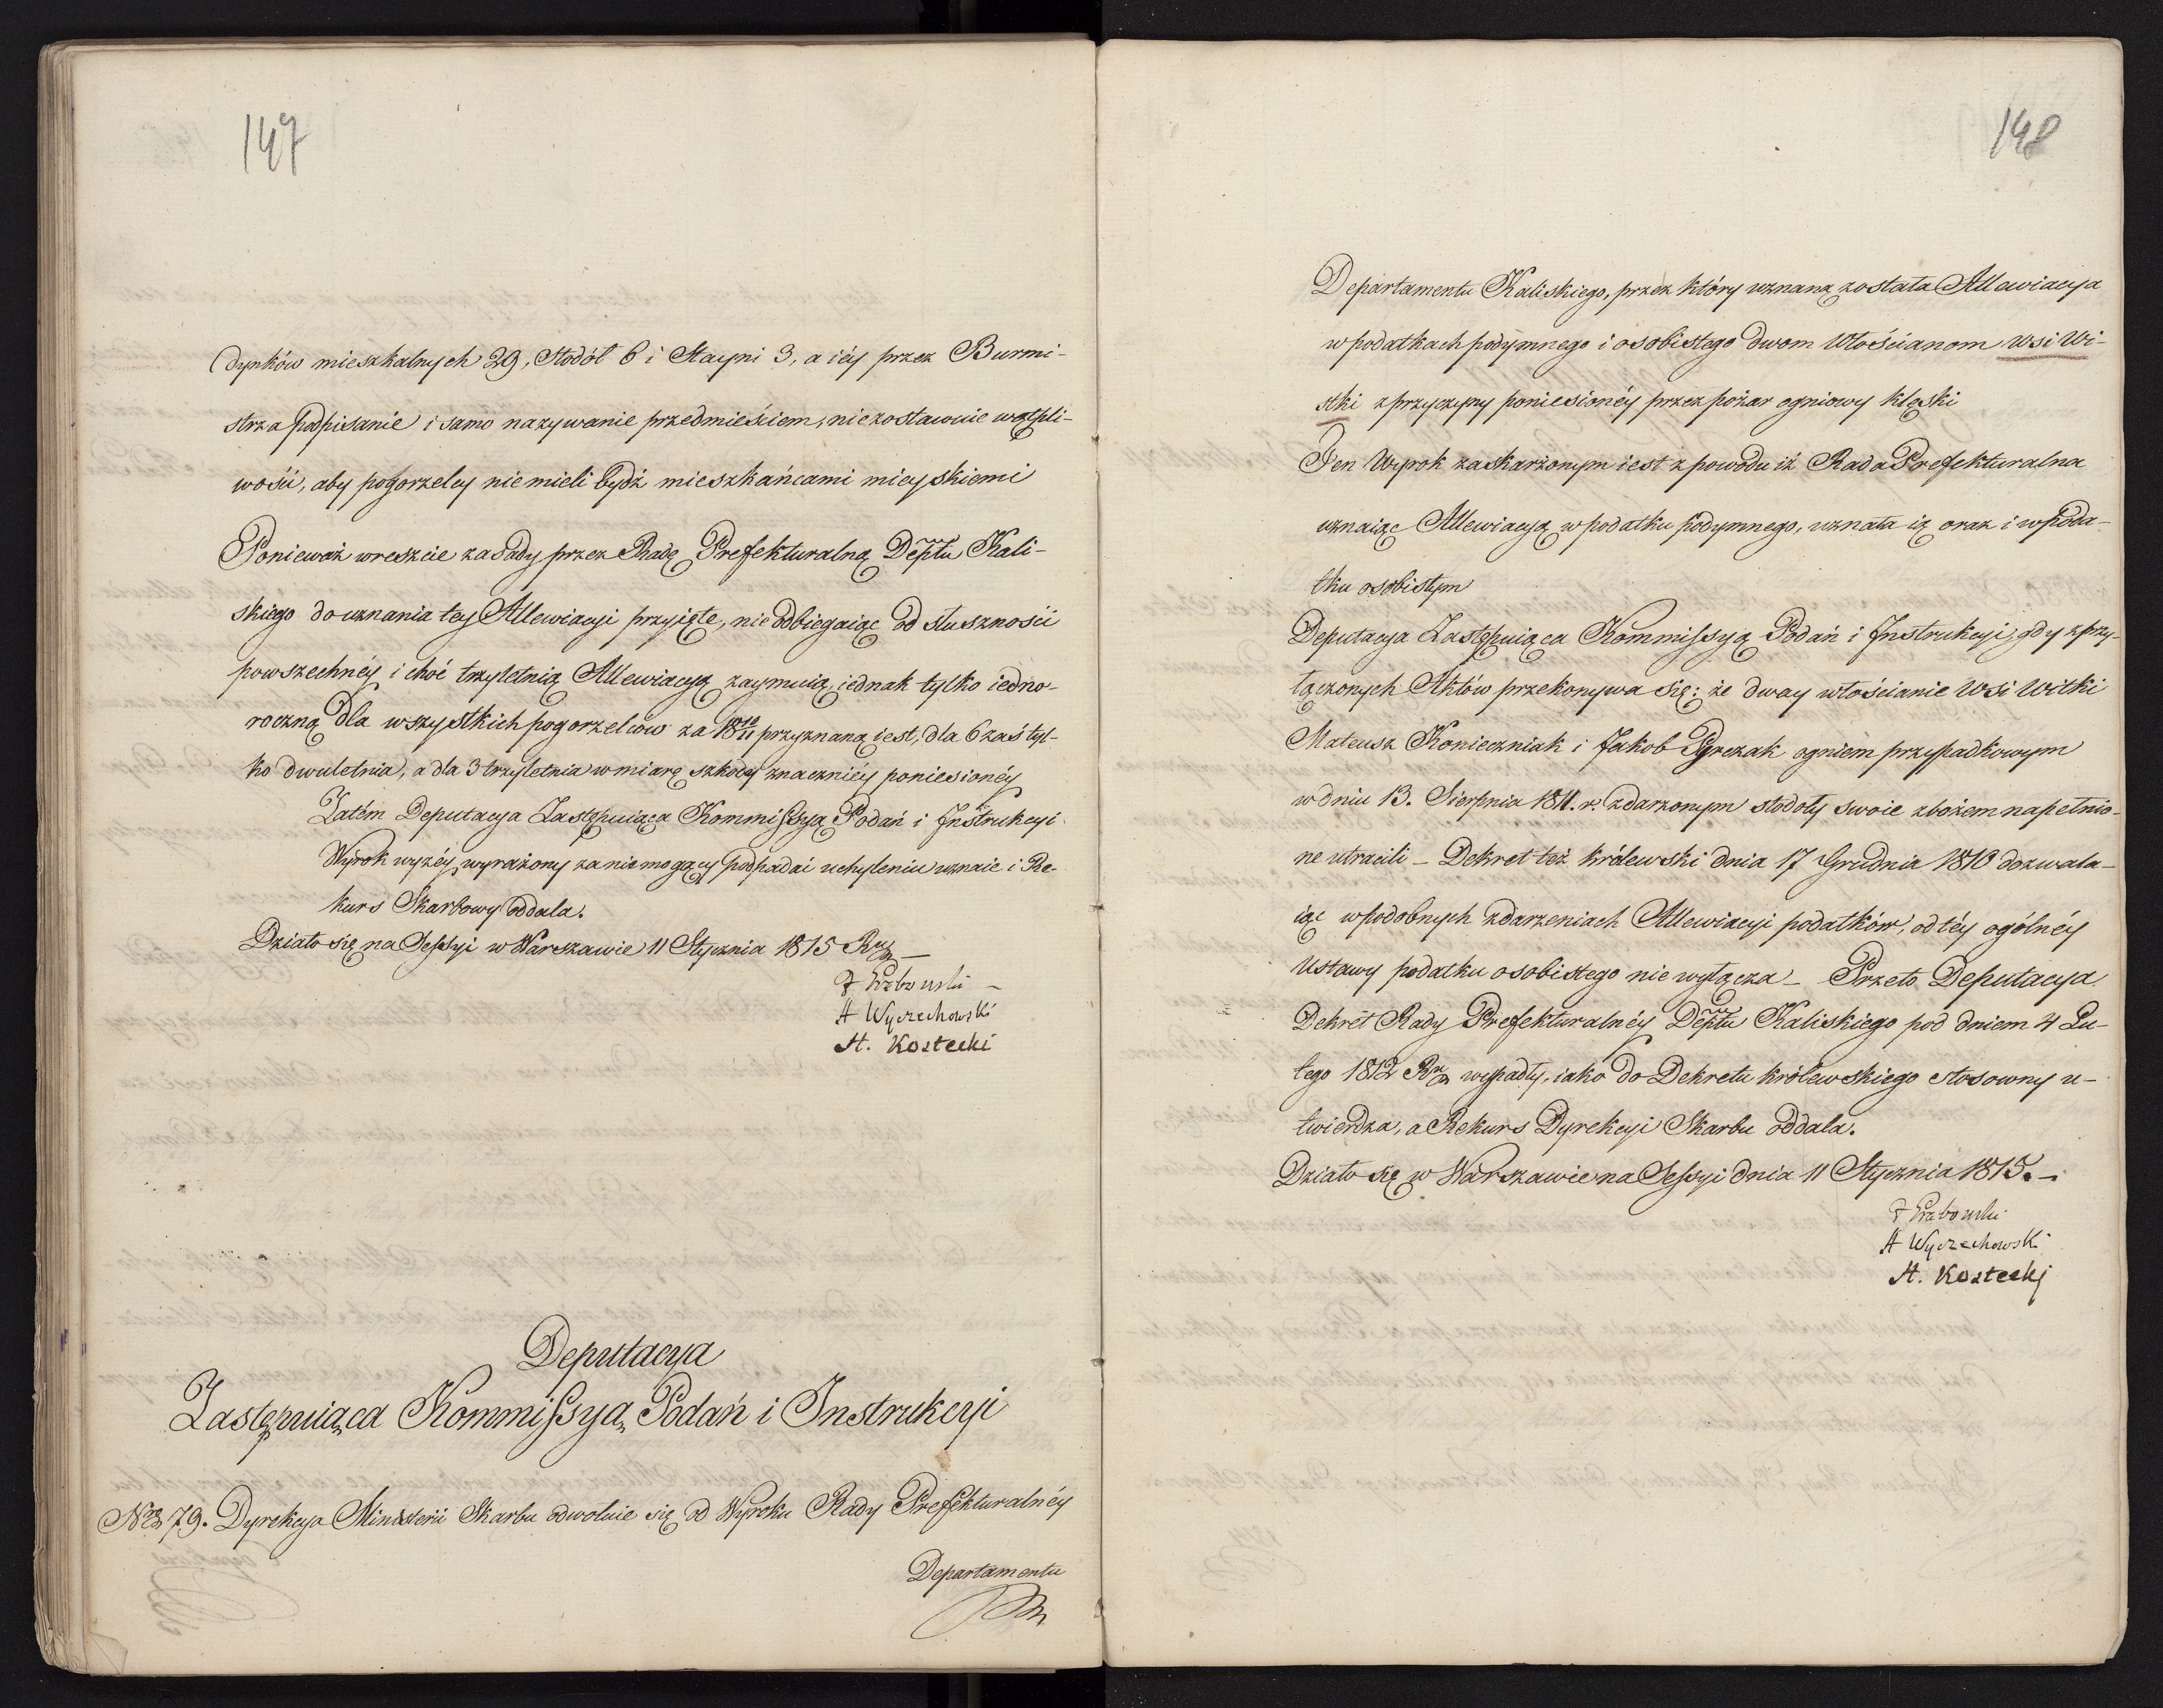 147
dynków mieszkalnych 29, Stodół 6 i Stayni 3, a iéy przez Burmi-
strza podpisanie i samo nazywanie przedmieściem, niezostawuie wątpli-
wości, aby pogorzelcy nie mieli bydź mieszkańcami mieyskiemi
Ponieważ wreszcie zasady przez Radę Prefekturalną Deptu Kali-
skiego do uznania tey Allewiacyi przyięte, nie odbiegaiąc od słuszności
powszechnéy i choć trzyletnią Allewiacyą zaymuią, iednak tylko iedno-
roczną dla wszystkich pogorzelców za 18 10/11 przyznaną iest, dla 6 zaś tyl-
ko dwuletnia, a dla 3 trzyletnia w miarę szkody znaczniéy poniesionéy
Zatém Deputacya Zastępuiąca Kommissyą Podań i Instrukcyi
Wyrok wyżéy wyrażony za nie mogący podpadać uchyleniu uznaie i Re-
kurs Skarbowy oddala.
Działo się na Sessyi w Warszawie 11 Stycznia 1815 Rku
A Wyczechowski
St. Kostecki
Deputacya
Zastępuiąca Kommissyą Podań i Instrukcyi
Nro 79. Dyrekcya Ministerii Skarbu odwołuie się od Wyroku Rady Prefekturalnéy
Departamentu
148
Departamentu Kaliskiego, przez który uznaną została Allewiacya
w podatkach podymnego i osobistego dwom Włościanom Wsi Wi-
tki z przyczyny poniesionéy przez pożar ogniowy klęski
Ten Wyrok zaskarżonym iest z powodu iż Rada Prefekturalna
uznaiąc Allewiacyą w podatku podymnego, uznała ią oraz i w poda-
tku osobistym
Deputacya Zastępuiąca Kommissyą Podań i Instrukcyi, gdy z przy-
łączonych Aktów przekonywa się: że dway włościanie Wsi Witki
Mateusz Konieczniak i Jakob Pyrczak ogniem przypadkowym
w dniu 13. Sierpnia 1811. r. zdarzonym stodoły swoie zbożem napełnio-
ne utracili - Dekret też królewski dnia 17 Grudnia 1810 dozwala-
iąc w podobnych zdarzeniach Allewiacyi podatków, od téy ogólnéy
Ustawy podatku osobistego nie wyłącza - Przeto Deputacya
Dekret Rady Prefekturalnéy Deptu Kaliskiego pod dniem 4 Lu-
tego 1812 Rku wypadły, iako do Dekretu królewskiego stosowny u-
twierdza, a Rekurs Dyrekcyi Skarbu oddala.
Działo się w Warszawie na Sessyi dnia 11 Stycznia 1815. -
A Wyczechowski
St. Kostecki